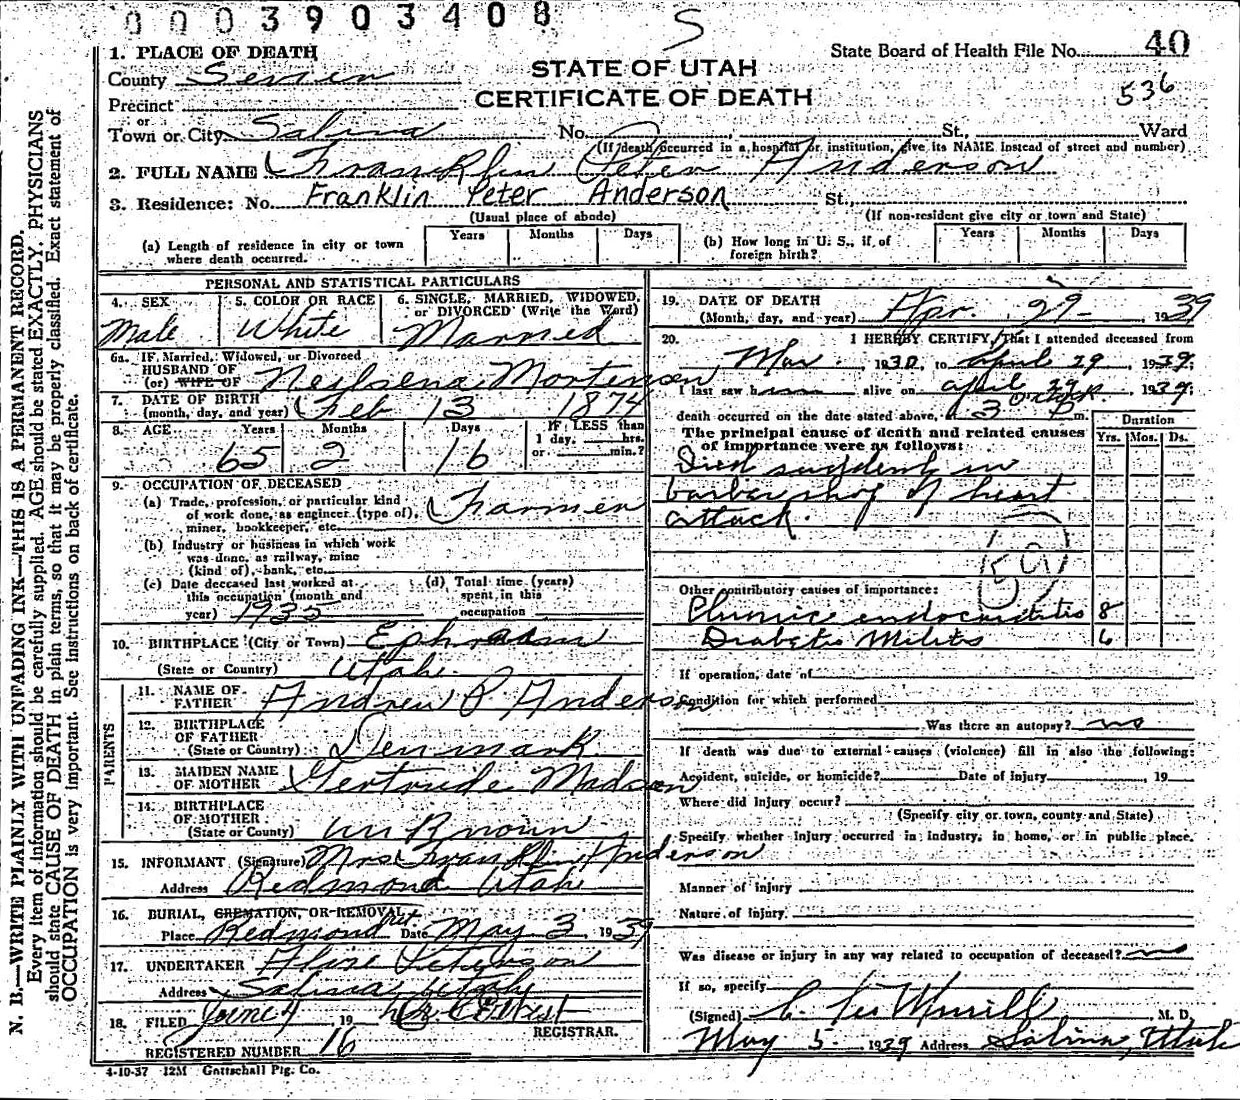 0003903408
S
1. PLACE OF DEATH
State Board of Health File No. 40
County Sevier
STATE OF UTAH
536
Precinct
CERTIFICATE OF DEATH
or
Town or City Salina No. St., Ward
(If death occurred in a hospital or institution, give its NAME instead of street and number)
2. FULL NAME Franklin Peter Anderson
3. Residence: No. Franklin Peter Anderson St.,
(Usual place of abode) (If non-resident give city or town and State)
(a) Length of residence in city or town where death occurred. Years Months Days
(b) How long in U. S., if of foreign birth? Years Months Days
PERSONAL AND STATISTICAL PARTICULARS
4. SEX 5. COLOR OR RACE 6. SINGLE, MARRIED, WIDOWED, or DIVORCED (Write the Word)
Male White Married
6a. IF Married, Widowed, or Divorced
HUSBAND OF
(or) WIFE OF Neilsena Mortensen
7. DATE OF BIRTH
(month, day, and year) Feb 13 1874
8. AGE Years Months Days IF LESS than
1 day, hrs.
or min.?
65 2 16
9. OCCUPATION OF DECEASED
(a) Trade, profession, or particular kind
of work done, as engineer (type of),
miner, bookkeeper, etc. Farmer
(b) Industry or business in which work
was done, as railway, mine
(kind of), bank, etc.
(c) Date deceased last worked at
this occupation (month and
year) 1935
(d) Total time (years)
spent in this
occupation
10. BIRTHPLACE (City or Town) Ephraim
(State or Country) Utah.
PARENTS
11. NAME OF
FATHER Andrew P. Anderson
12. BIRTHPLACE
OF FATHER
(State or Country) Denmark
13. MAIDEN NAME
OF MOTHER Gertrude Madson
14. BIRTHPLACE
OF MOTHER
(State or Country) unknown
15. INFORMANT (Signature) Mrs Franklin Anderson
Address Redmond Utah
16. BURIAL, CREMATION, OR REMOVAL
Place Redmond Ut Date May 3, 1939
17. UNDERTAKER Peterson
Address Salina Utah
18. FILED June 4, 19
REGISTRAR.
REGISTERED NUMBER 16
4-10-37 12M Gottschall Ptg. Co.
19. DATE OF DEATH
(Month, day, and year) Apr. 29 - , 1939
20. I HEREBY CERTIFY, That I attended deceased from
Mar. , 1930, to April 29, 1939;
I last saw him alive on april 29, 1939;
death occurred on the date stated above, a 3 oclock P m.
The principal cause of death and related causes
of importance were as follows:
Duration
Yrs. Mos. Ds.
Died suddenly in
barber shop of heart
attack.
Other contributory causes of importance:
Chronic endocarditis 8
Diabetis Melitis 6
If operation, date of
Condition for which performed
Was there an autopsy? no
If death was due to external causes (violence) fill in also the following:
Accident, suicide, or homicide? Date of Injury , 19
Where did injury occur?
(Specify city or town, county and State)
Specify whether injury occurred in industry, in home, or in public place.
Manner of injury
Nature of Injury
Was disease or injury in any way related to occupation of deceased? no
If so, specify
(Signed) Merrill , M. D.
May 5 - 1939 Address Salina, Utah
N. B.—WRITE PLAINLY WITH UNFADING INK—THIS IS A PERMANENT RECORD.
Every item of information should be carefully supplied. AGE should be stated EXACTLY. PHYSICIANS
should state CAUSE OF DEATH in plain terms, so that it may be properly classified. Exact statement of
OCCUPATION is very important. See instructions on back of certificate.